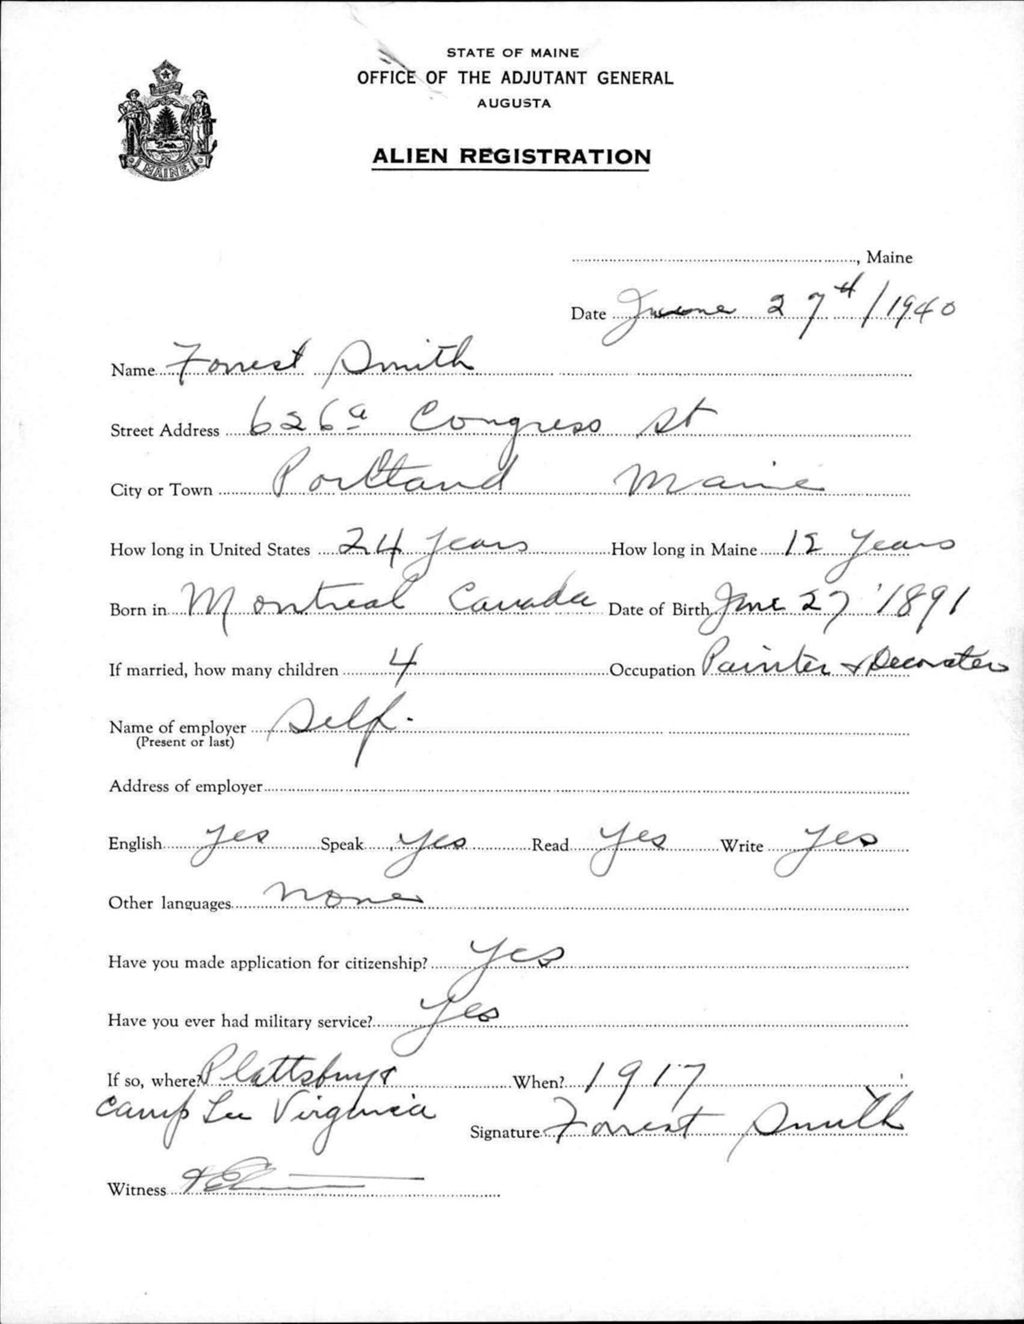 STATE OF MAINE
OFFICE OF THE ADJUTANT GENERAL
AUGUSTA
ALIEN REGISTRATION
MAINE
, Maine
Date June 27th/1940
Name Forrest Smith
Street Address 626a Congress St
City or Town Portland Maine
How long in United States 24 years How long in Maine 12 Years
Born in Montreal Canada Date of Birth June 27 1891
If married, how many children 4 Occupation Painter & Decorater
Name of employer Self.
(Present or last)
Address of employer
English yes Speak yes Read yes Write yes
Other languages none
Have you made application for citizenship? yes
Have you ever had military service? Yes
If so, where? Plattsburg & When? 1917
Camp Lee Virginia
Signature Forrest Smith
Witness